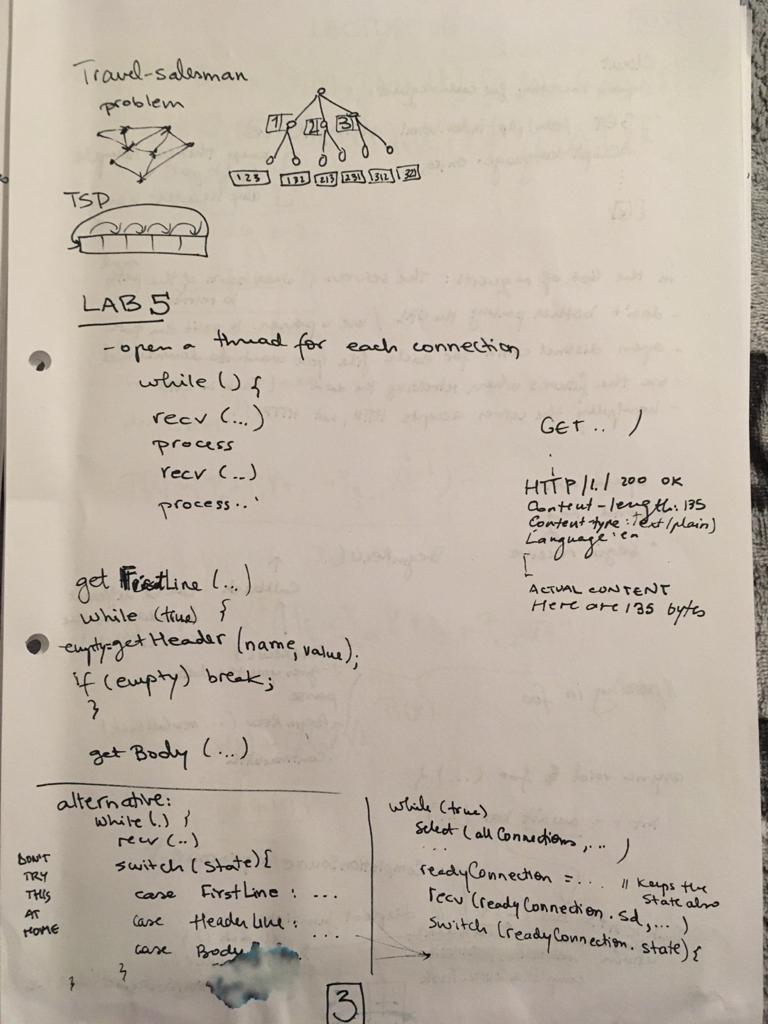 Travel-salesman
problem
1 2 3
123 132 213 231 312 321
TSP
LAB 5
- open a thread for each connection
while () {
recv (...)
process
recv (..)
process...
GET .. /
HTTP/1.1 200 OK
Content-length: 135
Content type: text/plain
Language: en
[
ACTUAL CONTENT
Here are 135 bytes
get FirstLine (...)
while (true) {
empty=getHeader (name, value);
if (empty) break;
}
get Body (...)
alternative:
while (.) {
recv (..)
switch (state) {
case FirstLine: ...
case HeaderLine: ...
case Body
}
}
DON'T
TRY
THIS
AT
HOME
while (true)
select (allConnections, ... )
...
readyConnection = ... // keeps the
state also
recv (readyConnection.sd, ... )
switch (readyConnection.state) {
3